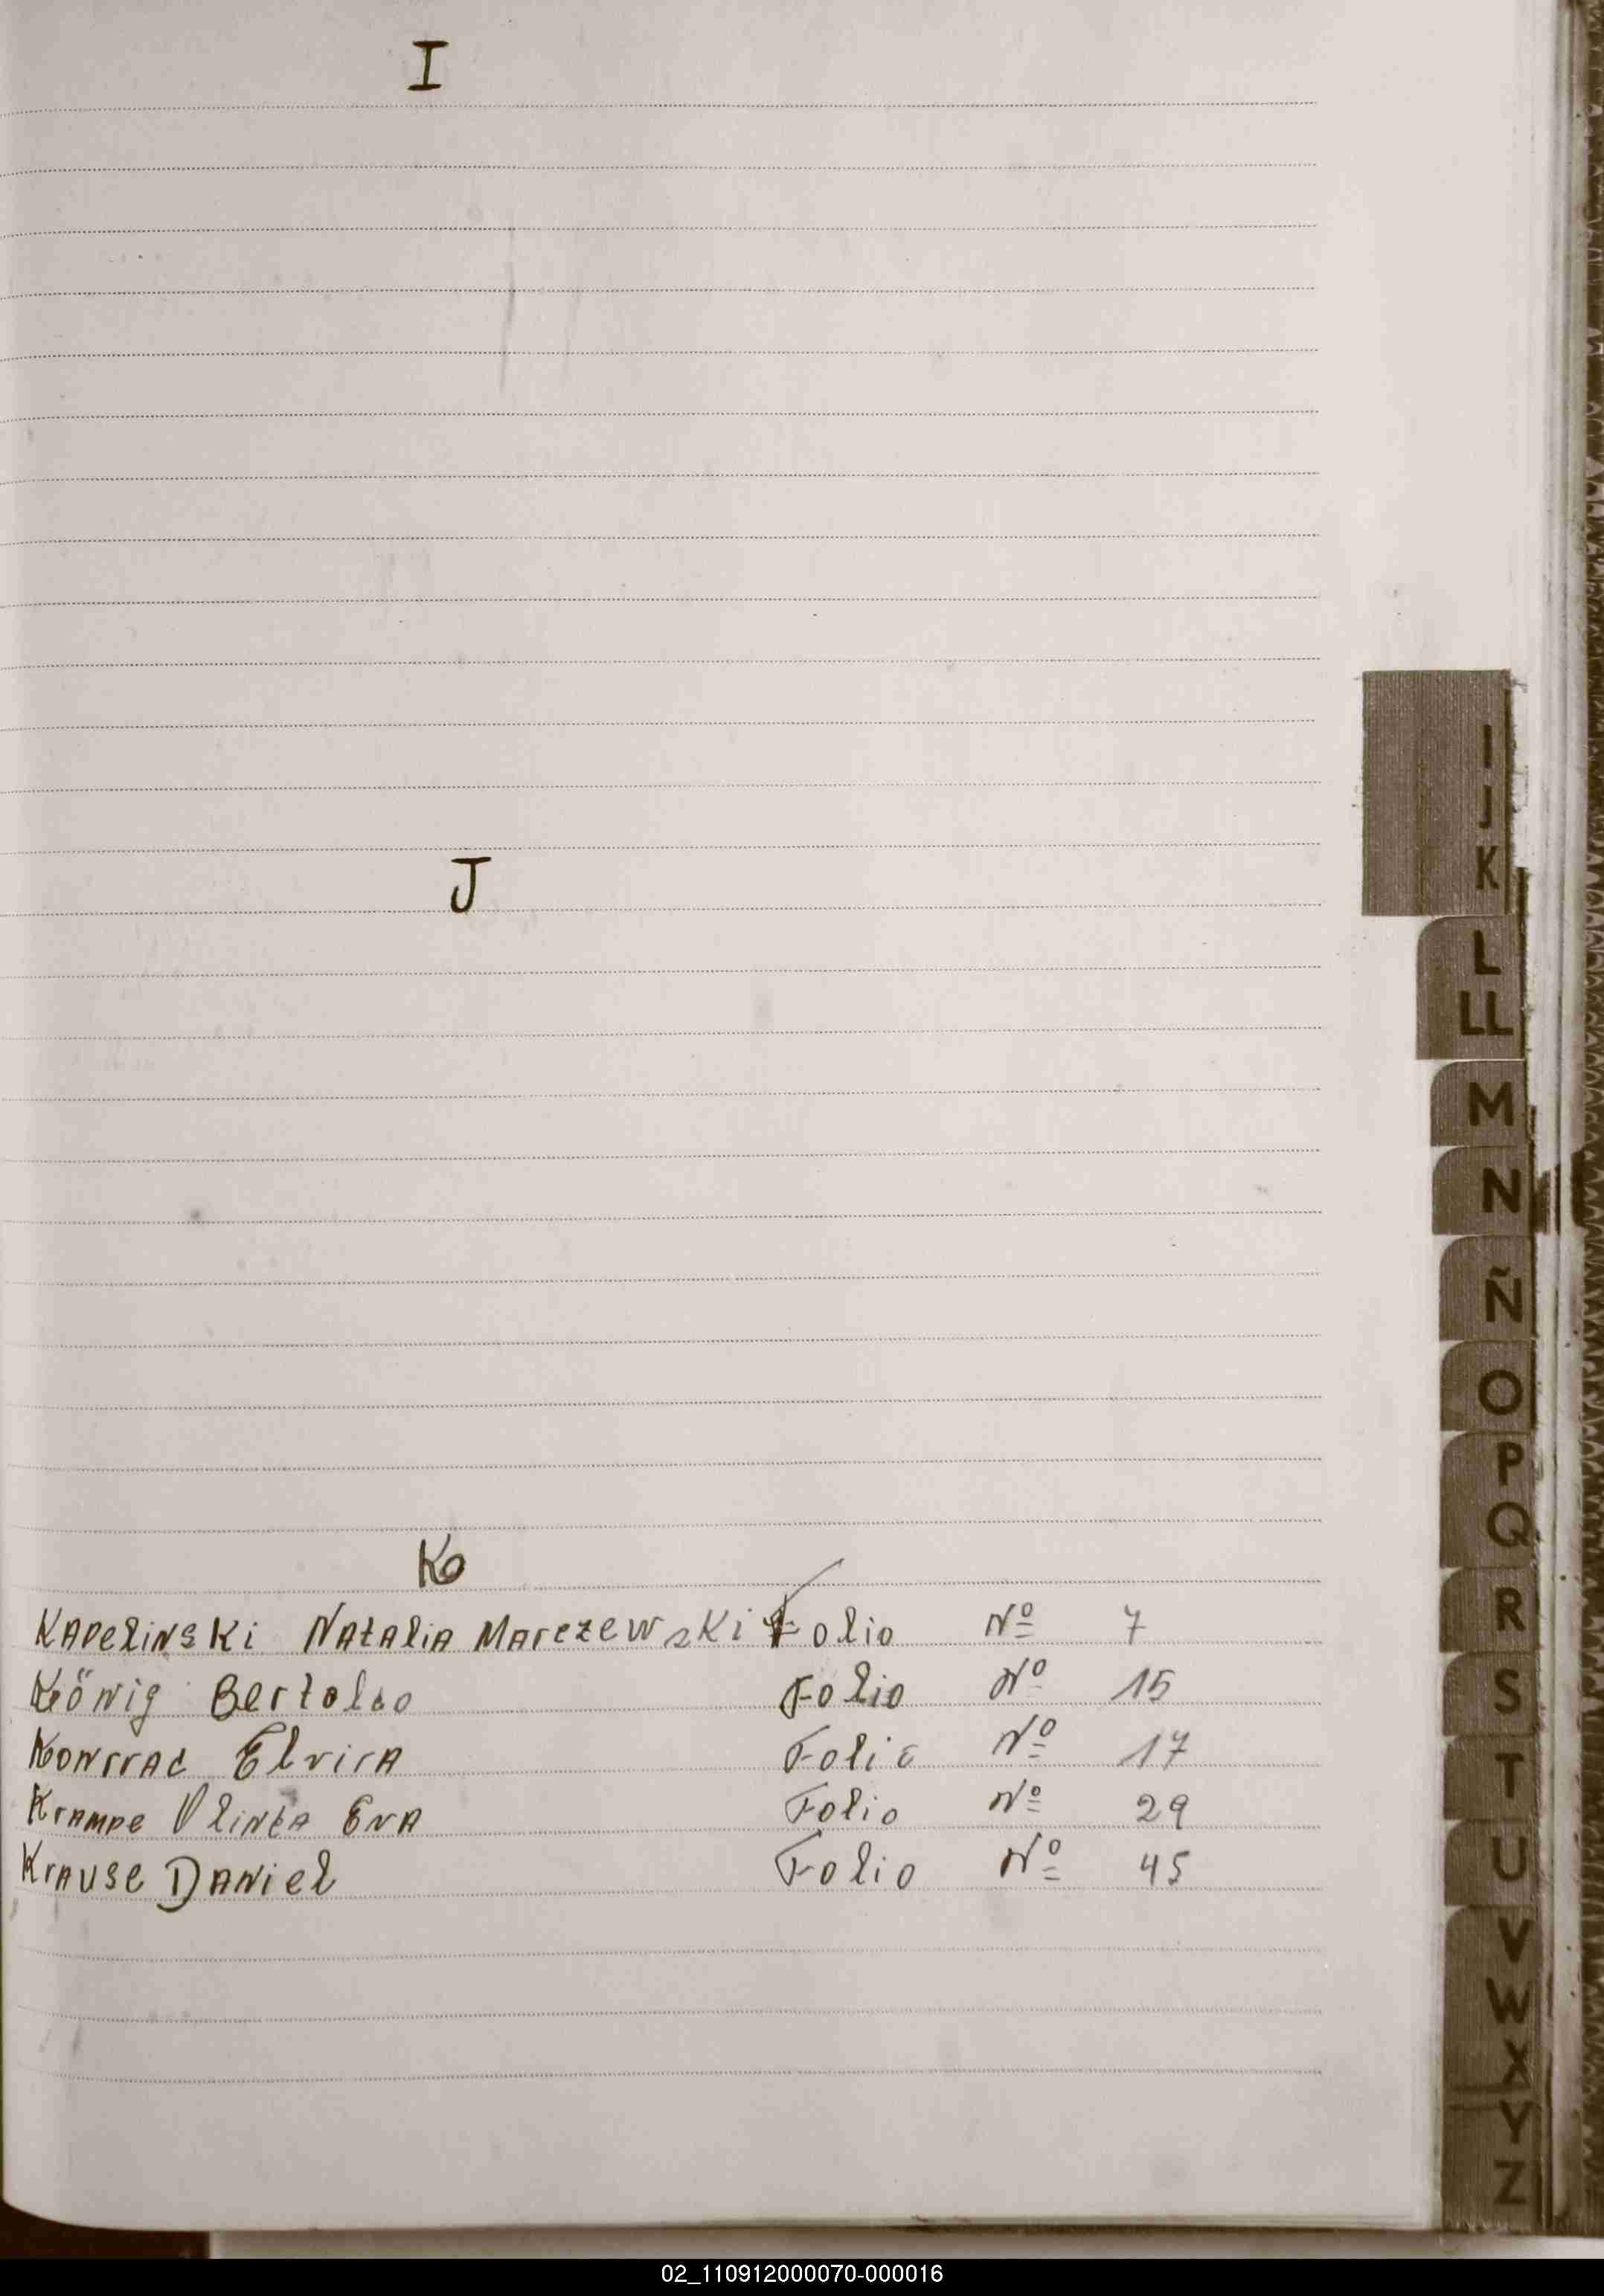 I
J
K
Kapelinski Natalia Marczewski Folio Nº 7
König Bertoldo Folio Nº 15
Konrrad Elvira Folio Nº 17
Krampe Olinda Eva Folio Nº 29
Krause Daniel Folio Nº 45
I
J
K
L
LL
M
N
Ñ
O
P
Q
R
S
T
U
V
W
X
Y
Z
02_110912000070-000016